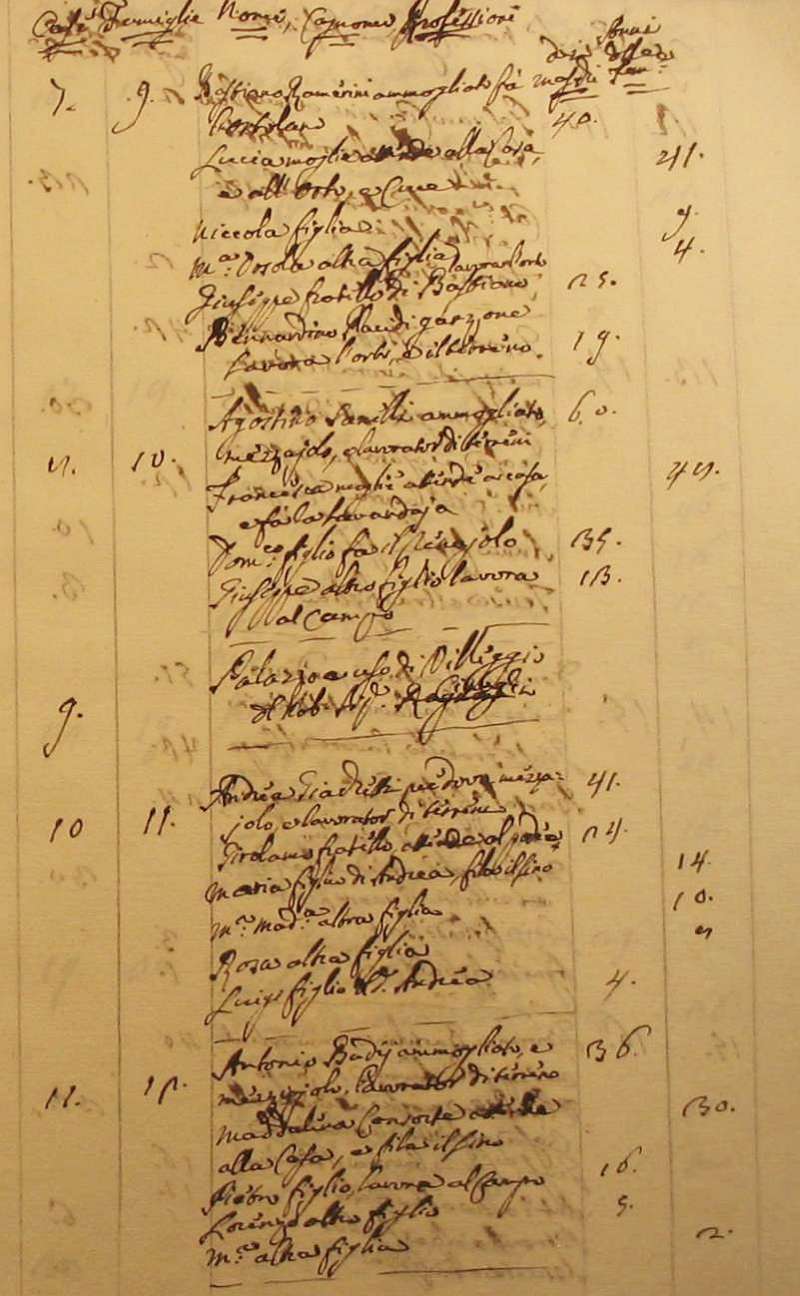 Case Famiglie Nomi, Cognomi, Professioni Anni
dei Maschi delle Fem.e
7. 9. Bastiano Ramerini ammogliato fà
l'ortolano 40.
Lucia moglie attende alla Casa, 41.
e all'Orto, e Cuce
Niccola figlia 9.
M.a Orsola altra figlia 4.
Giuseppe fratello di Bastiano lavora l'orto 25.
Bernardino garzone
Lavora l'orto, e il terreno. 19.
10. Agostino ammogliato, 60.
mezzajolo, e lavorator di terreni
Francesca moglie attende a casa,
e fà la Lavandaja
Dom.co figlio fà il 35.
Giuseppe altro figlio lavora 13.
al Campo
9. Palazzo a uso di Villeggio
del Nob. Sig.r
10 11. Andrea vedovo mezza= 41.
jolo, e lavorator di terreni
Girolamo fratello, attende al 24.
Maria figlia di Andrea, fila il lino 14.
M.a Mad.a altra figlia 10.
Rosa altra figlia
Luigi figlio d.o Andrea 4.
11. 12. Antonio Badij ammogliato, e 36.
mezzajolo, lavorator di terreno
Maddalena Consorte attende 30.
alla Casa, e fila il lino
Pietro figlio lavora al Campo 16.
Lorenzo altro figlio 5.
M.a altra figlia 2.